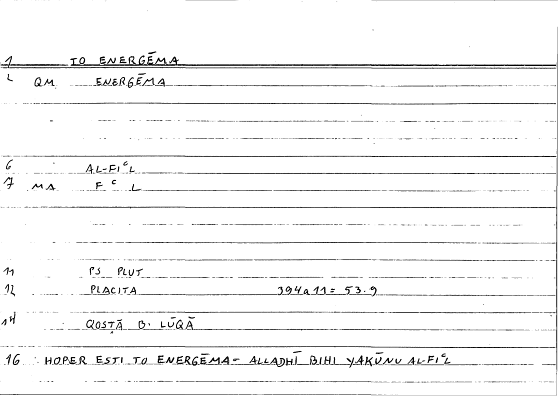 1 TO ENERGĒMA
L QM ENERGĒMA
6 AL-FIᶜL
7 MA F ᶜ L
11 PS PLUT
12 PLACITA 394a11= 53.9
14 QOSṬĀ B. LŪQĀ
16 HOPER ESTI TO ENERGĒMA- ALLADHĪ BIHI YAKŪNU AL-FIᶜL